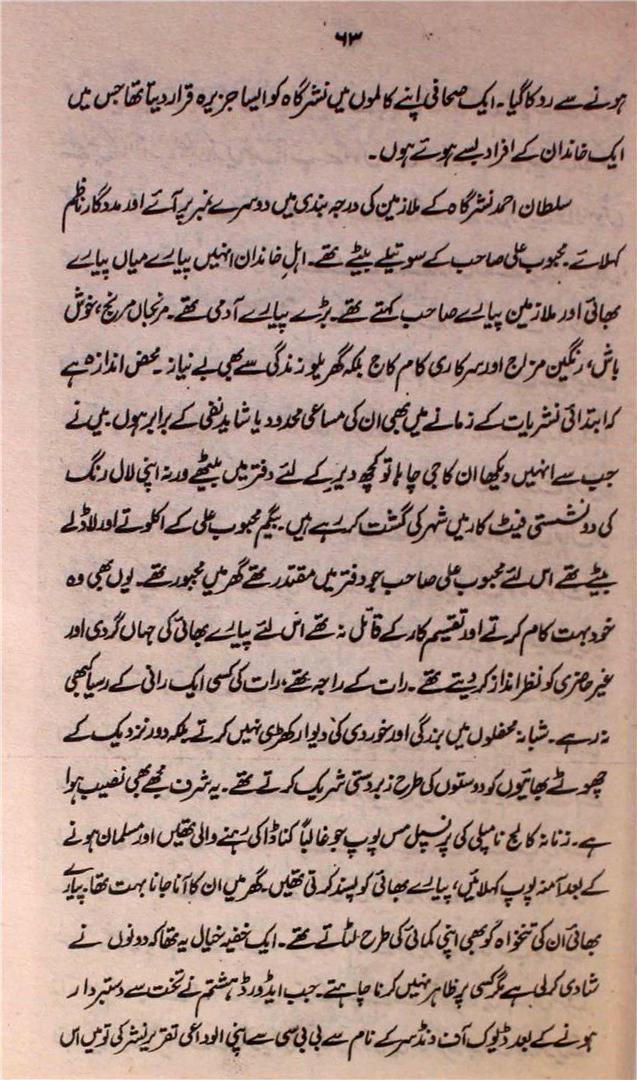 ۶۳
ہونے سے روکا گیا۔ ایک صحافی اپنے کالموں میں نشرگاہ کو ایسا جزیرہ قرار دیتا تھا جس میں
ایک خاندان کے افراد بسے ہوتے ہوں۔
سلطان احمد نشرگاہ کے ملازمین کی درجہ بندی میں دوسرے نمبر پر آئے اور مددگار ناظم
کہلائے۔ محبوب علی صاحب کے سوتیلے بیٹے تھے۔ اہلِ خاندان انہیں پیارے میاں پیارے
بھائی اور ملازمین پیارے صاحب کہتے تھے۔ بڑے پیارے آدمی تھے۔ مرنجاں مرنج، خوش
باش، رنگین مزاج اور سرکاری کام کاج بلکہ گھریلو زندگی سے بھی بے نیاز۔ محض اندازہ ہے
کہ ابتدائی نشریات کے زمانے میں بھی ان کی مساعی محدود یا شاید نفی کے برابر ہوں۔ میں نے
جب سے انہیں دیکھا ان کا جی چاہا تو کچھ دیر کے لئے دفتر میں بیٹھے ورنہ اپنی لال رنگ
کی دو نشستی فیٹ کار میں شہر کی گشت کر رہے ہیں۔ بیگم محبوب علی کے اکلوتے اور لاڈلے
بیٹے تھے اس لئے محبوب علی صاحب جو دفتر میں مقتدر تھے گھر میں مجبور تھے۔ یوں بھی وہ
خود بہت کام کرتے اور تقسیم کار کے قائل نہ تھے اس لئے پیارے بھائی کی جہاں گردی اور
غیر حاضری کو نظر انداز کر دیتے تھے۔ رات کے راجہ تھے، رات کی کسی ایک رانی کے رسیا کبھی
نہ رہے۔ شبانہ محفلوں میں بزرگی اور خوردی کی دیوار کھڑی نہیں کرتے بلکہ دور نزدیک کے
چھوٹے بھائیوں کو دوستوں کی طرح زبردستی شریک کرتے تھے۔ یہ شرف مجھے بھی نصیب ہوا
ہے۔ زنانہ کالج نامپلی کی پرنسپل مس پوپ جو غالباً کناڈا کی رہنے والی تھیں اور مسلمان ہونے
کے بعد آمنہ پوپ کہلائیں، پیارے بھائی کو پسند کرتی تھیں۔ گھر میں ان کا آنا جانا بہت تھا۔ پیارے
بھائی ان کی تنخواہ کو بھی اپنی کمائی کی طرح لٹاتے تھے۔ ایک خفیہ خیال یہ تھا کہ دونوں نے
شادی کر لی ہے مگر کسی پر ظاہر نہیں کرنا چاہتے۔ جب ایڈورڈ ہشتم نے تخت سے دستبردار
ہونے کے بعد ڈیوک آف ونڈسر کے نام سے بی بی سی سے اپنی الوداعی تقریر نشر کی تو میں اس